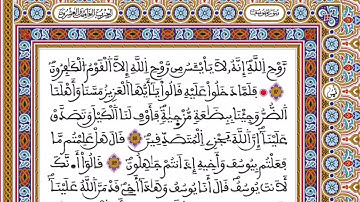 رَّوْحِ اللَّهِ إِنَّهُ لَا يَا۟يْـَٔسُ مِن رَّوْحِ اللَّهِ إِلَّا الْقَوْمُ الْكَٰفِرُونَ
فَلَمَّا دَخَلُوا عَلَيْهِ قَالُوا يَٰٓأَيُّهَا الْعَزِيزُ مَسَّنَا وَأَهْلَنَا
الضُّرُّ وَجِئْنَا بِبِضَٰعَةٍ مُّزْجَىٰةٍ فَأَوْفِ لَنَا الْكَيْلَ وَتَصَدَّقْ
عَلَيْنَا إِنَّ اللَّهَ يَجْزِى الْمُتَصَدِّقِينَ قَالَ هَلْ عَلِمْتُم مَّا
فَعَلْتُم بِيُوسُفَ وَأَخِيهِ إِذْ أَنتُمْ جَٰهِلُونَ قَالُوٓا أَءِنَّكَ
لَأَنتَ يُوسُفُ قَالَ أَنَا يُوسُفُ وَهَٰذَا أَخِى قَدْ مَنَّ اللَّهُ عَلَيْنَا